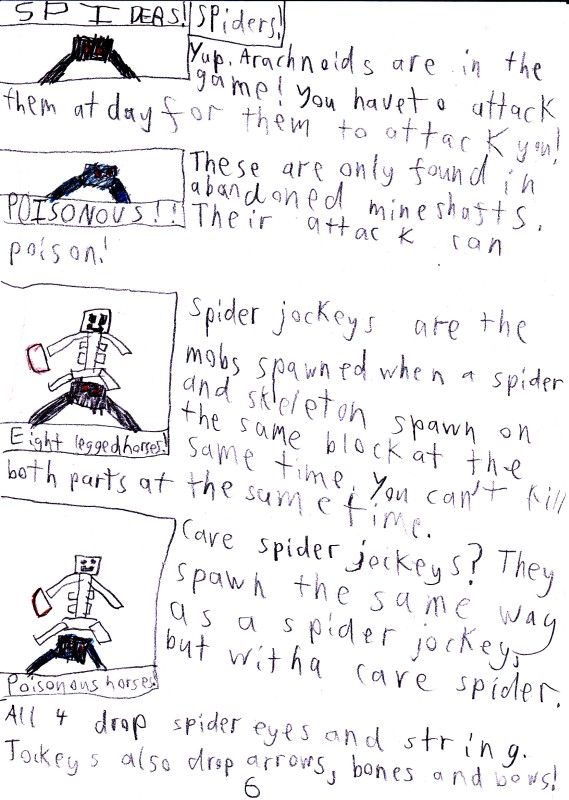 SPIDERS!
Spiders!
Yup. Arachnoids are in the
game! You have to attack
them at day for them to attack you!
These are only found in
abandoned mineshafts.
POISONOUS!!
Their attack can
poison!
Spider jockeys are the
mobs spawned when a spider
and skeleton spawn on
the same block at the
Eight legged horses!
same time. You can't kill
both parts at the same time.
Cave spider jockeys? They
spawn the same way
as a spider jockey,
but with a cave spider.
Poisonous horses!
All 4 drop spider eyes and string.
Jockeys also drop arrows, bones and bows!
6